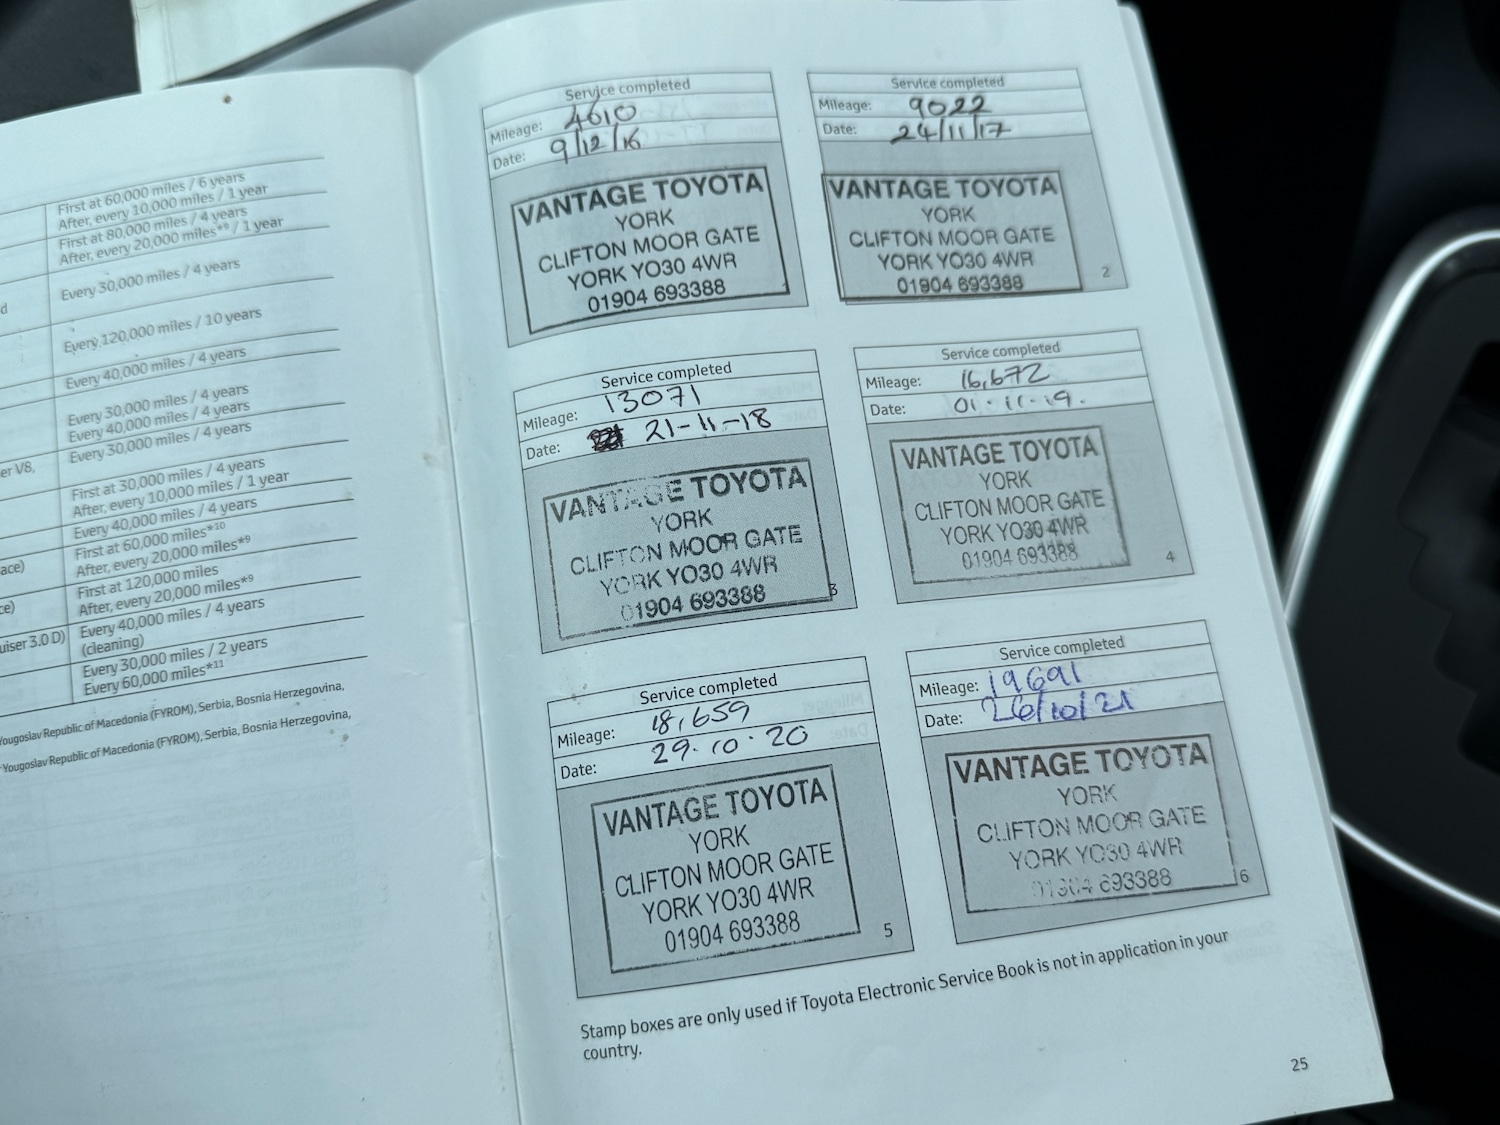 First at 60,000 miles / 6 years
After, every 10,000 miles / 1 year
First at 80,000 miles / 4 years
After, every 20,000 miles*9 / 1 year
d
Every 30,000 miles / 4 years
Every 120,000 miles / 10 years
Every 40,000 miles / 4 years
Every 30,000 miles / 4 years
Every 40,000 miles / 4 years
er V8,
Every 30,000 miles / 4 years
First at 30,000 miles / 4 years
After, every 10,000 miles / 1 year
Every 40,000 miles / 4 years
ace)
First at 60,000 miles*10
After, every 20,000 miles*9
ce)
First at 120,000 miles
After, every 20,000 miles*9
uiser 3.0 D)
Every 40,000 miles / 4 years
(cleaning)
Every 30,000 miles / 2 years
Every 60,000 miles*11
Yougoslav Republic of Macedonia (FYROM), Serbia, Bosnia Herzegovina,
Yougoslav Republic of Macedonia (FYROM), Serbia, Bosnia Herzegovina,
Service completed
Mileage: 4610
Date: 9/12/16
VANTAGE TOYOTA
YORK
CLIFTON MOOR GATE
YORK YO30 4WR
01904 693388
Service completed
Mileage: 9022
Date: 24/11/17
VANTAGE TOYOTA
YORK
CLIFTON MOOR GATE
YORK YO30 4WR
01904 693388
2
Service completed
Mileage: 13071
Date: 21-11-18
VANTAGE TOYOTA
YORK
CLIFTON MOOR GATE
YORK YO30 4WR
01904 693388
3
Service completed
Mileage: 16,672
Date: 01.11.19.
VANTAGE TOYOTA
YORK
CLIFTON MOOR GATE
YORK YO30 4WR
01904 693388
4
Service completed
Mileage: 18,659
Date: 29.10.20
VANTAGE TOYOTA
YORK
CLIFTON MOOR GATE
YORK YO30 4WR
01904 693388
5
Service completed
Mileage: 19691
Date: 26/10/21
VANTAGE TOYOTA
YORK
CLIFTON MOOR GATE
YORK YO30 4WR
01904 693388
6
Stamp boxes are only used if Toyota Electronic Service Book is not in application in your
country.
25